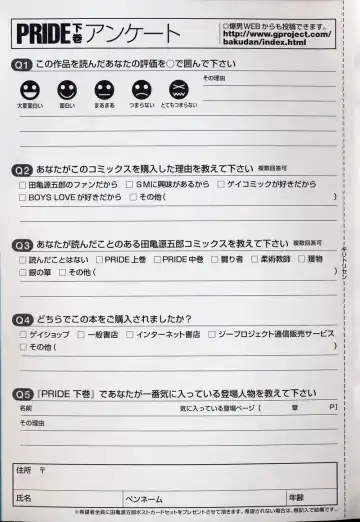 PRIDE 下巻 アンケート
◎爆男WEBからも投稿できます。
http://www.gproject.com/
bakudan/index.html
Q1 この作品を読んだあなたの評価を○で囲んで下さい
その理由
大変面白い 面白い まあまあ つまらない とてもつまらない
Q2 あなたがこのコミックスを購入した理由を教えて下さい 複数回答可
□田亀源五郎のファンだから □SMに興味があるから □ゲイコミックが好きだから
□BOYS LOVEが好きだから □その他( )
Q3 あなたが読んだことのある田亀源五郎コミックスを教えて下さい 複数回答可
□読んだことはない □PRIDE 上巻 □PRIDE 中巻 □嬲り者 □柔術教師 □獲物
□銀の華 □その他( )
Q4 どちらでこの本をご購入されましたか?
□ゲイショップ □一般書店 □インターネット書店 □ジープロジェクト通信販売サービス
□その他( )
Q5 『PRIDE 下巻』であなたが一番気に入っている登場人物を教えて下さい
名前 気に入っている登場ページ[ 章 P]
その理由
住所 〒
氏名 ペンネーム 年齢
※希望者全員に田亀源五郎ポストカードセットをプレゼントさせて頂きます。希望されない場合は、無記入で結構です。
キリトリセン